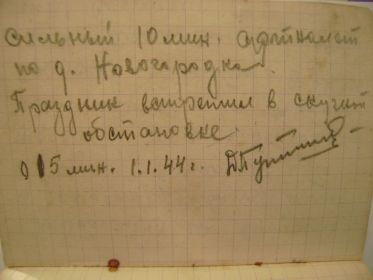 сильный 10 мин. артналет
по д. Новогородка.
Праздник встретил в скучной
обстановке.
0 15 мин. 1.1.44г.